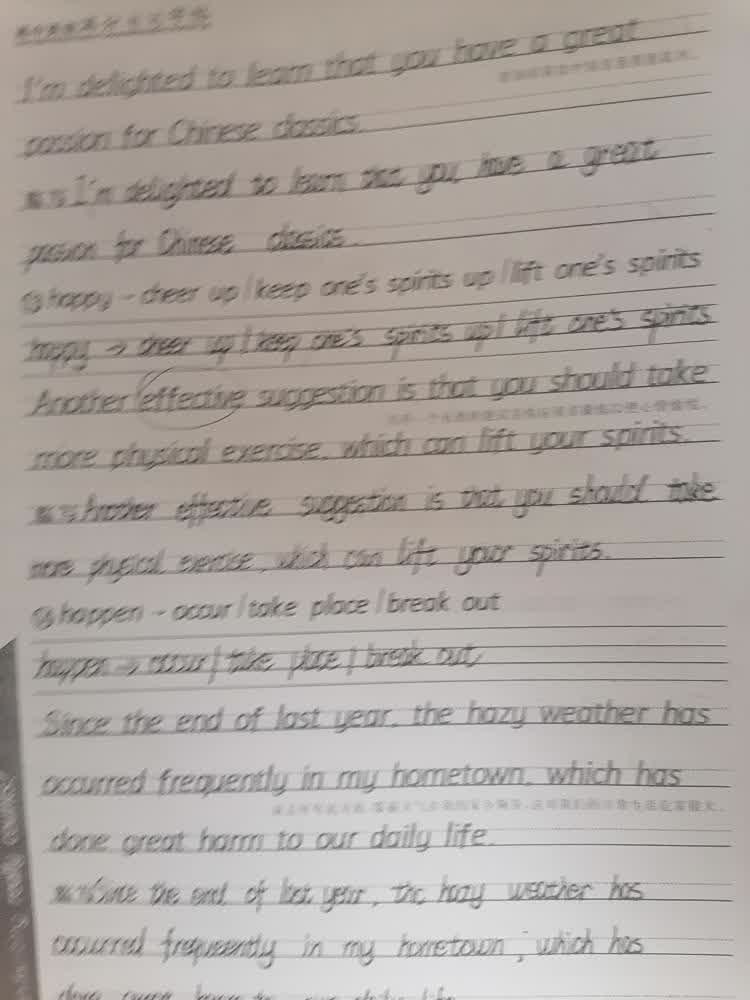 I'm delighted to learn that you have a great
passion for Chinese classics.
I'm delighted to learn that you have a great
passion for Chinese classics.
happy → cheer up / keep one's spirits up / lift one's spirits
happy → cheer up / keep one's spirits up / lift one's spirits
Another effective suggestion is that you should take
more physical exercise, which can lift your spirits.
Another effective suggestion is that you should take
more physical exercise, which can lift your spirits.
happen → occur / take place / break out
happen → occur / take place / break out
Since the end of last year, the hazy weather has
occurred frequently in my hometown, which has
done great harm to our daily life.
Since the end of last year, the hazy weather has
occurred frequently in my hometown, which has